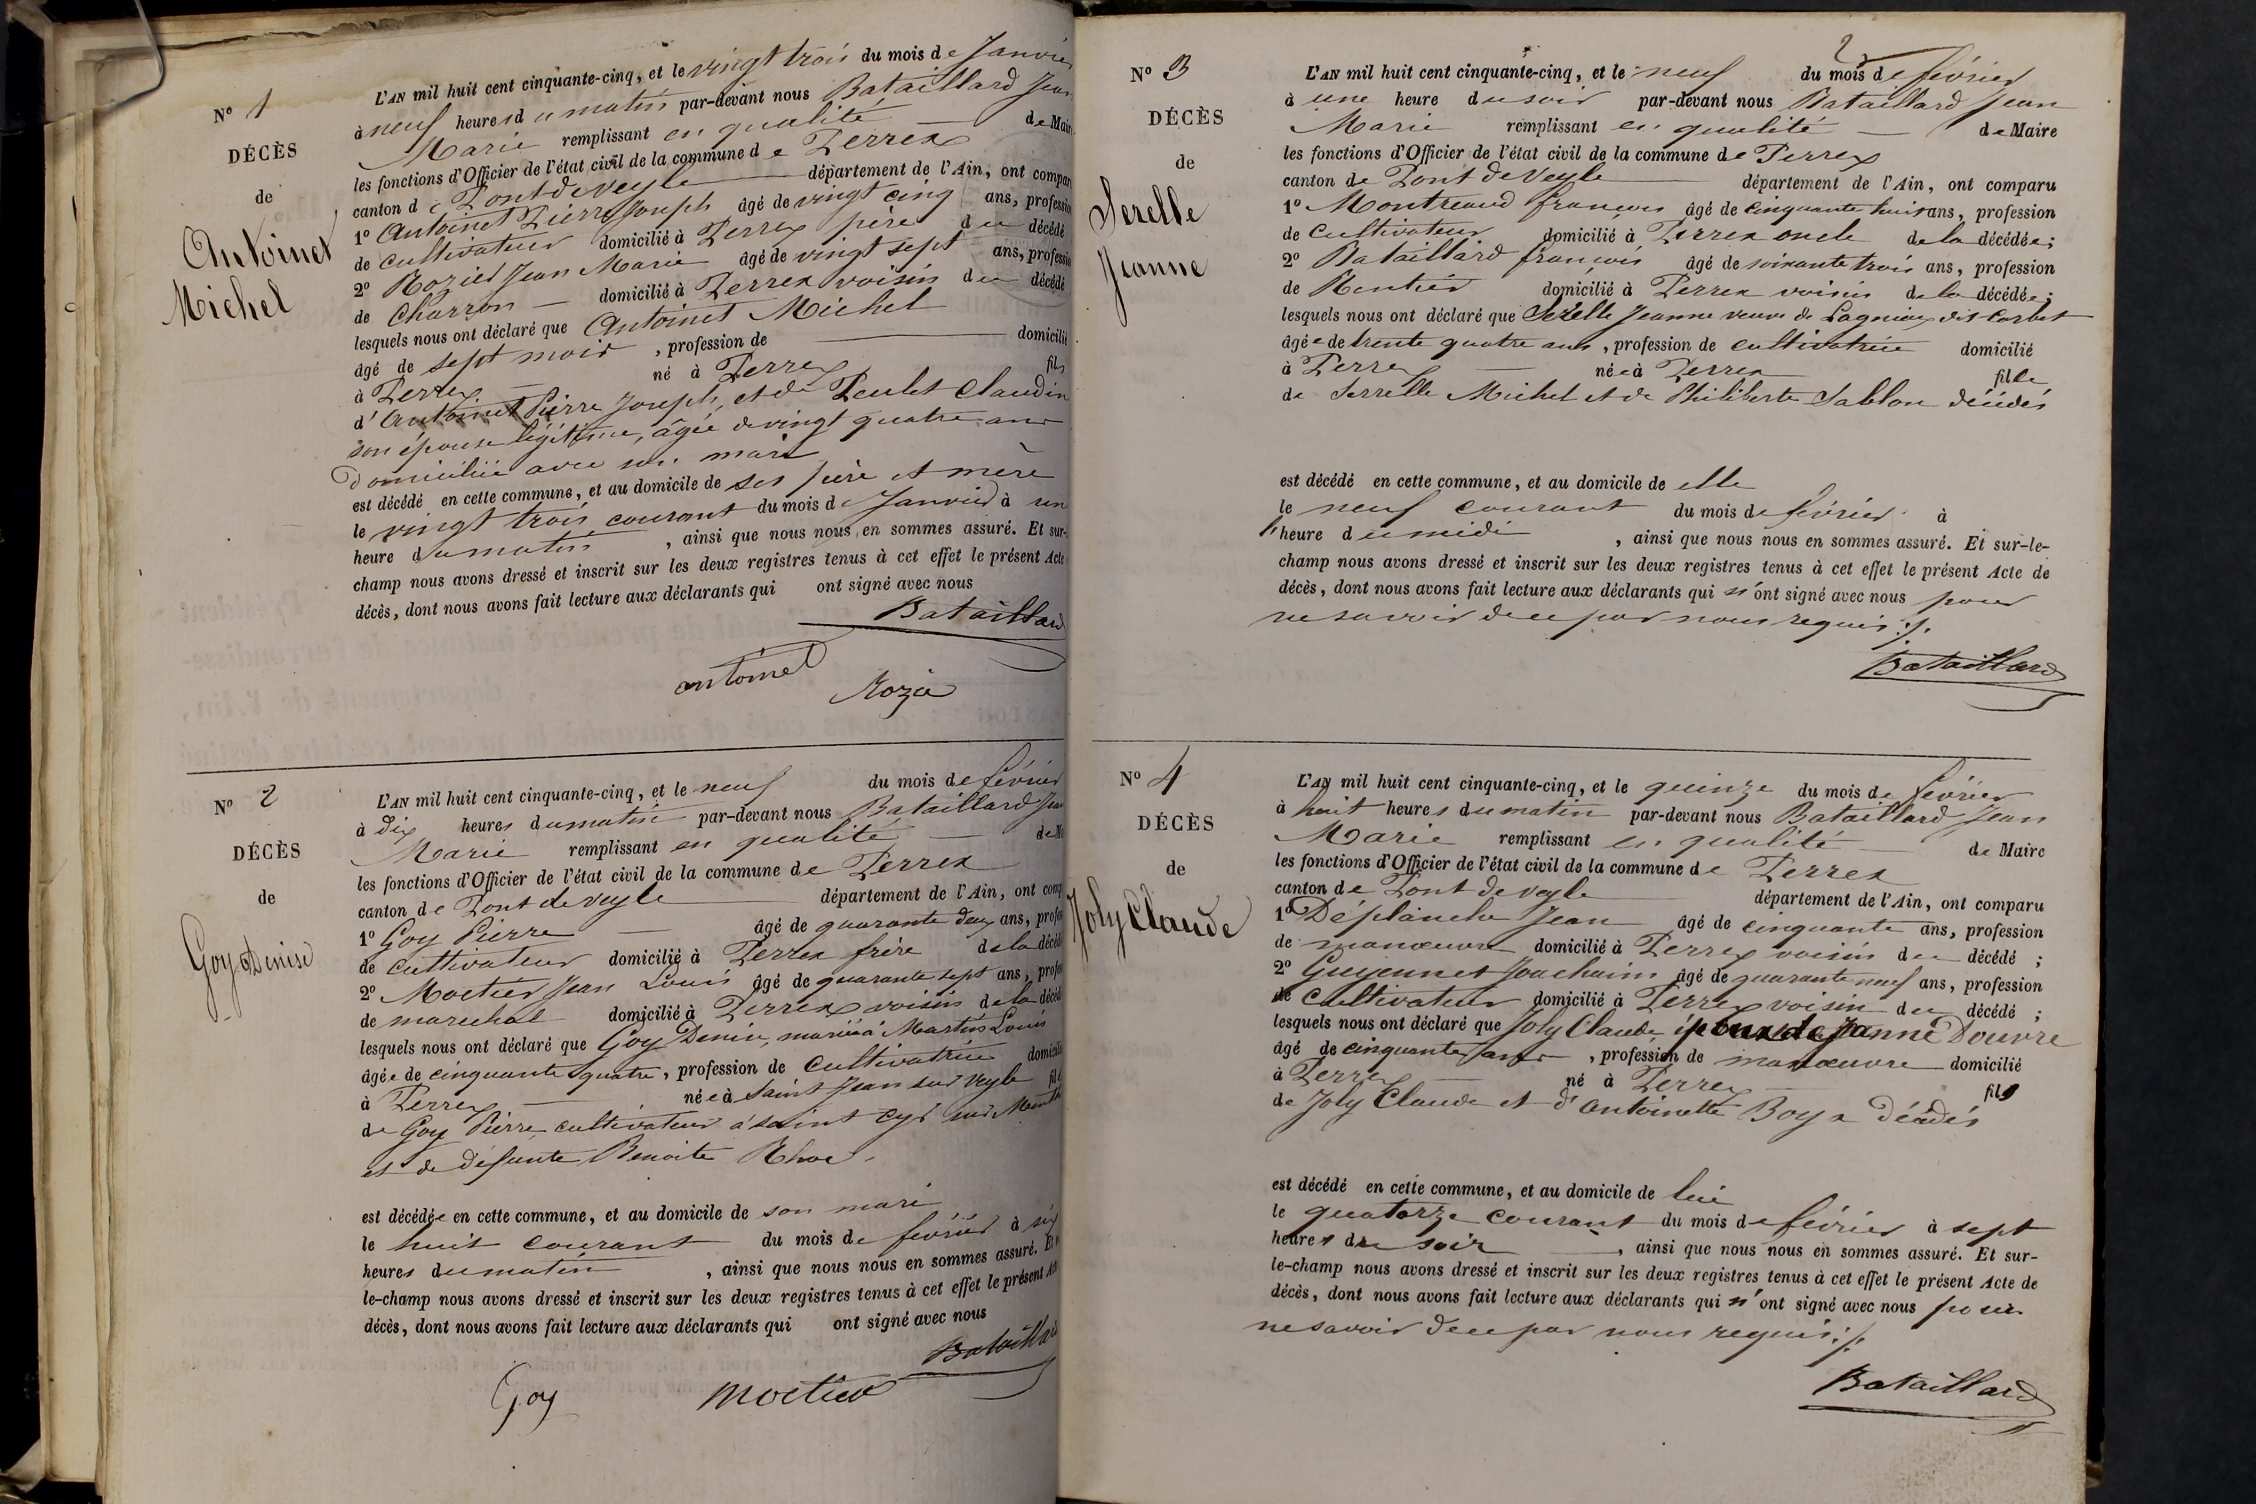 N° 1
DÉCÈS
de
Antoinet
Michel
L'AN mil huit cent cinquante-cinq, et le vingt trois du mois de Janvier
à neuf heures du matin par-devant nous Bataillard Jean
Marie remplissant en qualité de Maire
les fonctions d'Officier de l'état civil de la commune de Perrex
canton de Pont de veyle département de l'Ain, ont comparu
1° Antoinet Pierre Joseph âgé de vingt cinq ans, profession
de cultivateur domicilié à Perrex père du décédé
2° Rozier Jean Marie âgé de vingt sept ans, profession
de Charron domicilié à Perrex voisin du décédé
lesquels nous ont déclaré que Antoinet Michel
âgé de sept mois, profession de domicilié
à Perrex né à Perrex fils
d'Antoinet Pierre Joseph, et de Peulet Claudin
son épouse légitime, âgée de vingt quatre ans
domiciliée avec son mari
est décédé en cette commune, et au domicile de ses père et mère
le vingt trois courant du mois de Janvier à un
heure du matin, ainsi que nous nous en sommes assuré. Et sur-
champ nous avons dressé et inscrit sur les deux registres tenus à cet effet le présent Acte
décès, dont nous avons fait lecture aux déclarants qui ont signé avec nous
Bataillard
antoinet
Rozier
N° 2
DÉCÈS
de
Goy Denise
L'AN mil huit cent cinquante-cinq, et le neuf du mois de février
à dix heures du matin par-devant nous Bataillard Jean
Marie remplissant en qualité de Ma
les fonctions d'Officier de l'état civil de la commune de Perrex
canton de Pont de veyle département de l'Ain, ont comp
1° Goy Pierre âgé de quarante deux ans, profes
de cultivateur domicilié à Perrex frère de la décédé
2° Moctier Jean Louis âgé de quarante sept ans, profes
de marechal domicilié à Perrex voisin de la décédé
lesquels nous ont déclaré que Goy Denise, mariée à Martin Louis
âgée de cinquante quatre, profession de cultivatrice domicilié
à Perrex née à Saint Jean sur Veyle fil
de Goy Pierre cultivateur à Saint Cyr sur Menthon
et de défunte Benoite Rhoe
est décédée en cette commune, et au domicile de son mari
le huit courant du mois de février à six
heures du matin, ainsi que nous nous en sommes assuré. Et
le-champ nous avons dressé et inscrit sur les deux registres tenus à cet effet le présent Ac
décès, dont nous avons fait lecture aux déclarants qui ont signé avec nous
Bataillard
Goy moctier
2
N° 3
DÉCÈS
de
Serelle
Jeanne
L'AN mil huit cent cinquante-cinq, et le neuf du mois de février
à une heure du soir par-devant nous Bataillard Jean
Marie remplissant en qualité de Maire
les fonctions d'Officier de l'état civil de la commune de Perrex
canton de Pont de Veyle département de l'Ain, ont comparu
1° Montreaud françois âgé de cinquante huit ans, profession
de Cultivateur domicilié à Perrex oncle de la décédée;
2° Bataillard françois âgé de soixante trois ans, profession
de Rentier domicilié à Perrex voisin de la décédée;
lesquels nous ont déclaré que Serelle Jeanne veuve de Lagnieux dit Corbet
âgée de trente quatre ans, profession de cultivatrice domicilié
à Perrex née à Perrex fille
de Serrelle Michel et de Philiberte Sablon décédés
est décédé en cette commune, et au domicile de elle
le neuf courant du mois de février à
l'heure du midi, ainsi que nous nous en sommes assuré. Et sur-le-
champ nous avons dressé et inscrit sur les deux registres tenus à cet effet le présent Acte de
décès, dont nous avons fait lecture aux déclarants qui n'ont signé avec nous pour
ne savoir de ce par nous requis ./.
Bataillard
N° 4
DÉCÈS
de
Joly Claude
L'AN mil huit cent cinquante-cinq, et le quinze du mois de février
à huit heures du matin par-devant nous Bataillard Jean
Marie remplissant en qualité de Maire
les fonctions d'Officier de l'état civil de la commune de Perrex
canton de Pont de veyle département de l'Ain, ont comparu
1° Déplanche Jean âgé de cinquante ans, profession
de manœuvre domicilié à Perrex voisin du décédé;
2° Guyennet Joachaim âgé de quarante neuf ans, profession
de cultivateur domicilié à Perrex voisin du décédé;
lesquels nous ont déclaré que Joly Claude, époux de Jeanne Douvre
âgé de cinquante ans, profession de manœuvre domicilié
à Perrex né à Perrex fils
de Joly Claude et d'antoinette Boye décédés
est décédé en cette commune, et au domicile de lui
le quatorze courant du mois de février à sept
heures du soir, ainsi que nous nous en sommes assuré. Et sur-
le-champ nous avons dressé et inscrit sur les deux registres tenus à cet effet le présent Acte de
décès, dont nous avons fait lecture aux déclarants qui n'ont signé avec nous pour
ne savoir de ce par nous requis ./.
Bataillard